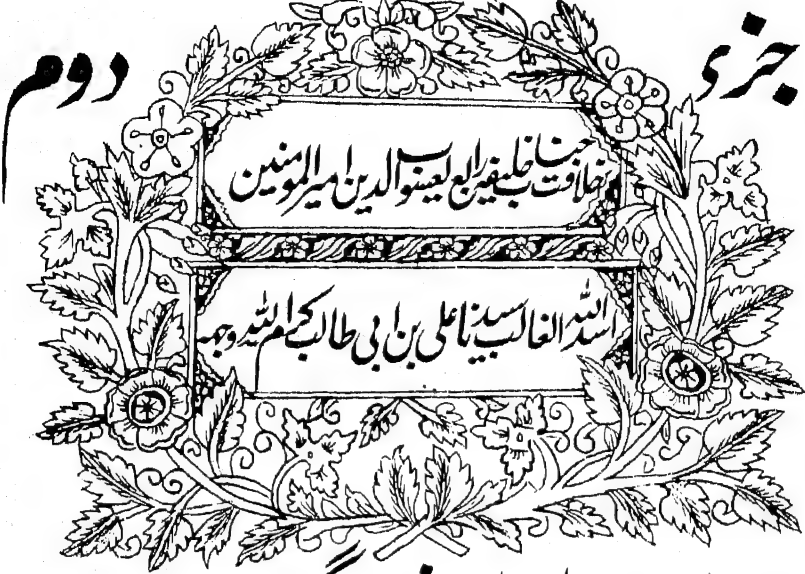 جزء دوم
خلافت جناب خلیفہ رابع یعسوب الدین امیر المومنین
اسد اللہ الغالب سیدنا علی بن ابی طالب کرم اللہ وجہہ